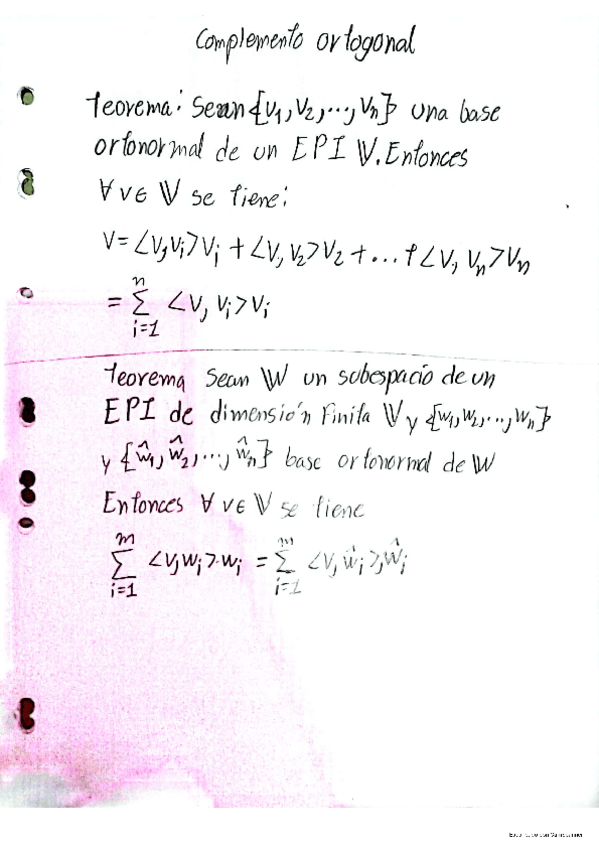 Complemento ortogonal
Teorema: Sean {v₁, v₂, ..., vₙ} una base
ortonormal de un EPI 𝕍. Entonces
∀ v ∈ 𝕍 se tiene:
V = <v, vᵢ> vᵢ + <v, v₂> v₂ + ... + <v, vₙ> vₙ
= ∑ⁿᵢ₌₁ <v, vᵢ> vᵢ
Teorema Sean 𝕎 un subespacio de un
EPI de dimensión finita 𝕍 y {w₁, w₂, ..., wₙ}
y {ŵ₁, ŵ₂, ..., ŵₙ} base ortonormal de 𝕎
Entonces ∀ v ∈ 𝕍 se tiene
∑ᵐᵢ₌₁ <v, wᵢ> . wᵢ = ∑ᵐᵢ₌₁ <v, ŵᵢ>, ŵᵢ